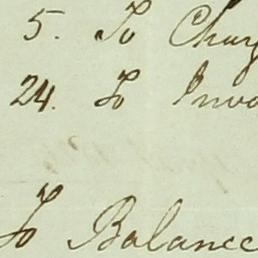 5. To Charg
24. To Invo
To Balance